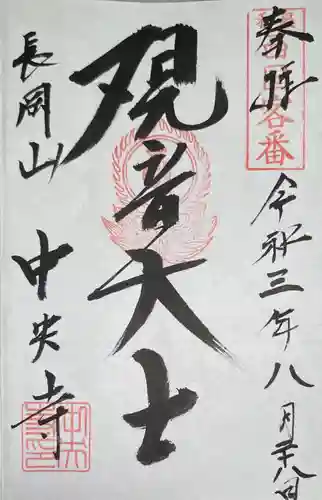 奉拝
令和三年八月二十八日
観音大士
長岡山
中央寺